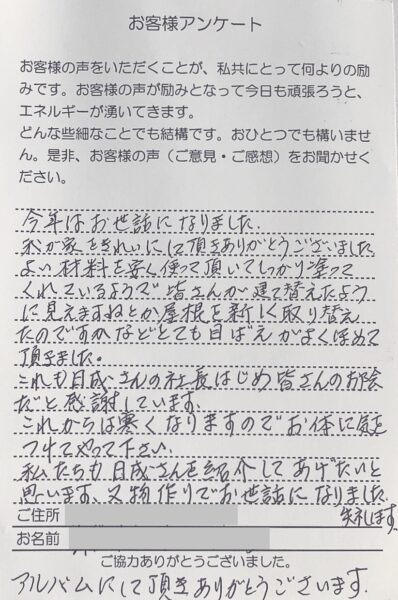 お客様アンケート
お客様の声をいただくことが、私共にとって何よりの励
みです。お客様の声が励みとなって今日も頑張ろうと、
エネルギーが湧いてきます。
どんな些細なことでも結構です。おひとつでも構いませ
ん。是非、お客様の声（ご意見・ご感想）をお聞かせく
ださい。
今年はお世話になりました.
我が家をきれいにして頂きありがとうございました
よい材料を安く使って頂いてしっかり塗って
くれているようで皆さんが建て替えたよう
に見えますねとか屋根を新しく取り替え
たのですかなどとても見ばえがよくほめて
頂きました。
これも日成さんの社長はじめ皆さんのお陰
だと感謝しています.
これからは寒くなりますのでお体に気を
つけてやって下さい.
私たちも日成さんを紹介してあげたいと
思います、又物作りでお世話になりました
失礼します
ご住所
お名前
ご協力ありがとうございました。
アルバムにして頂きありがとうございます.